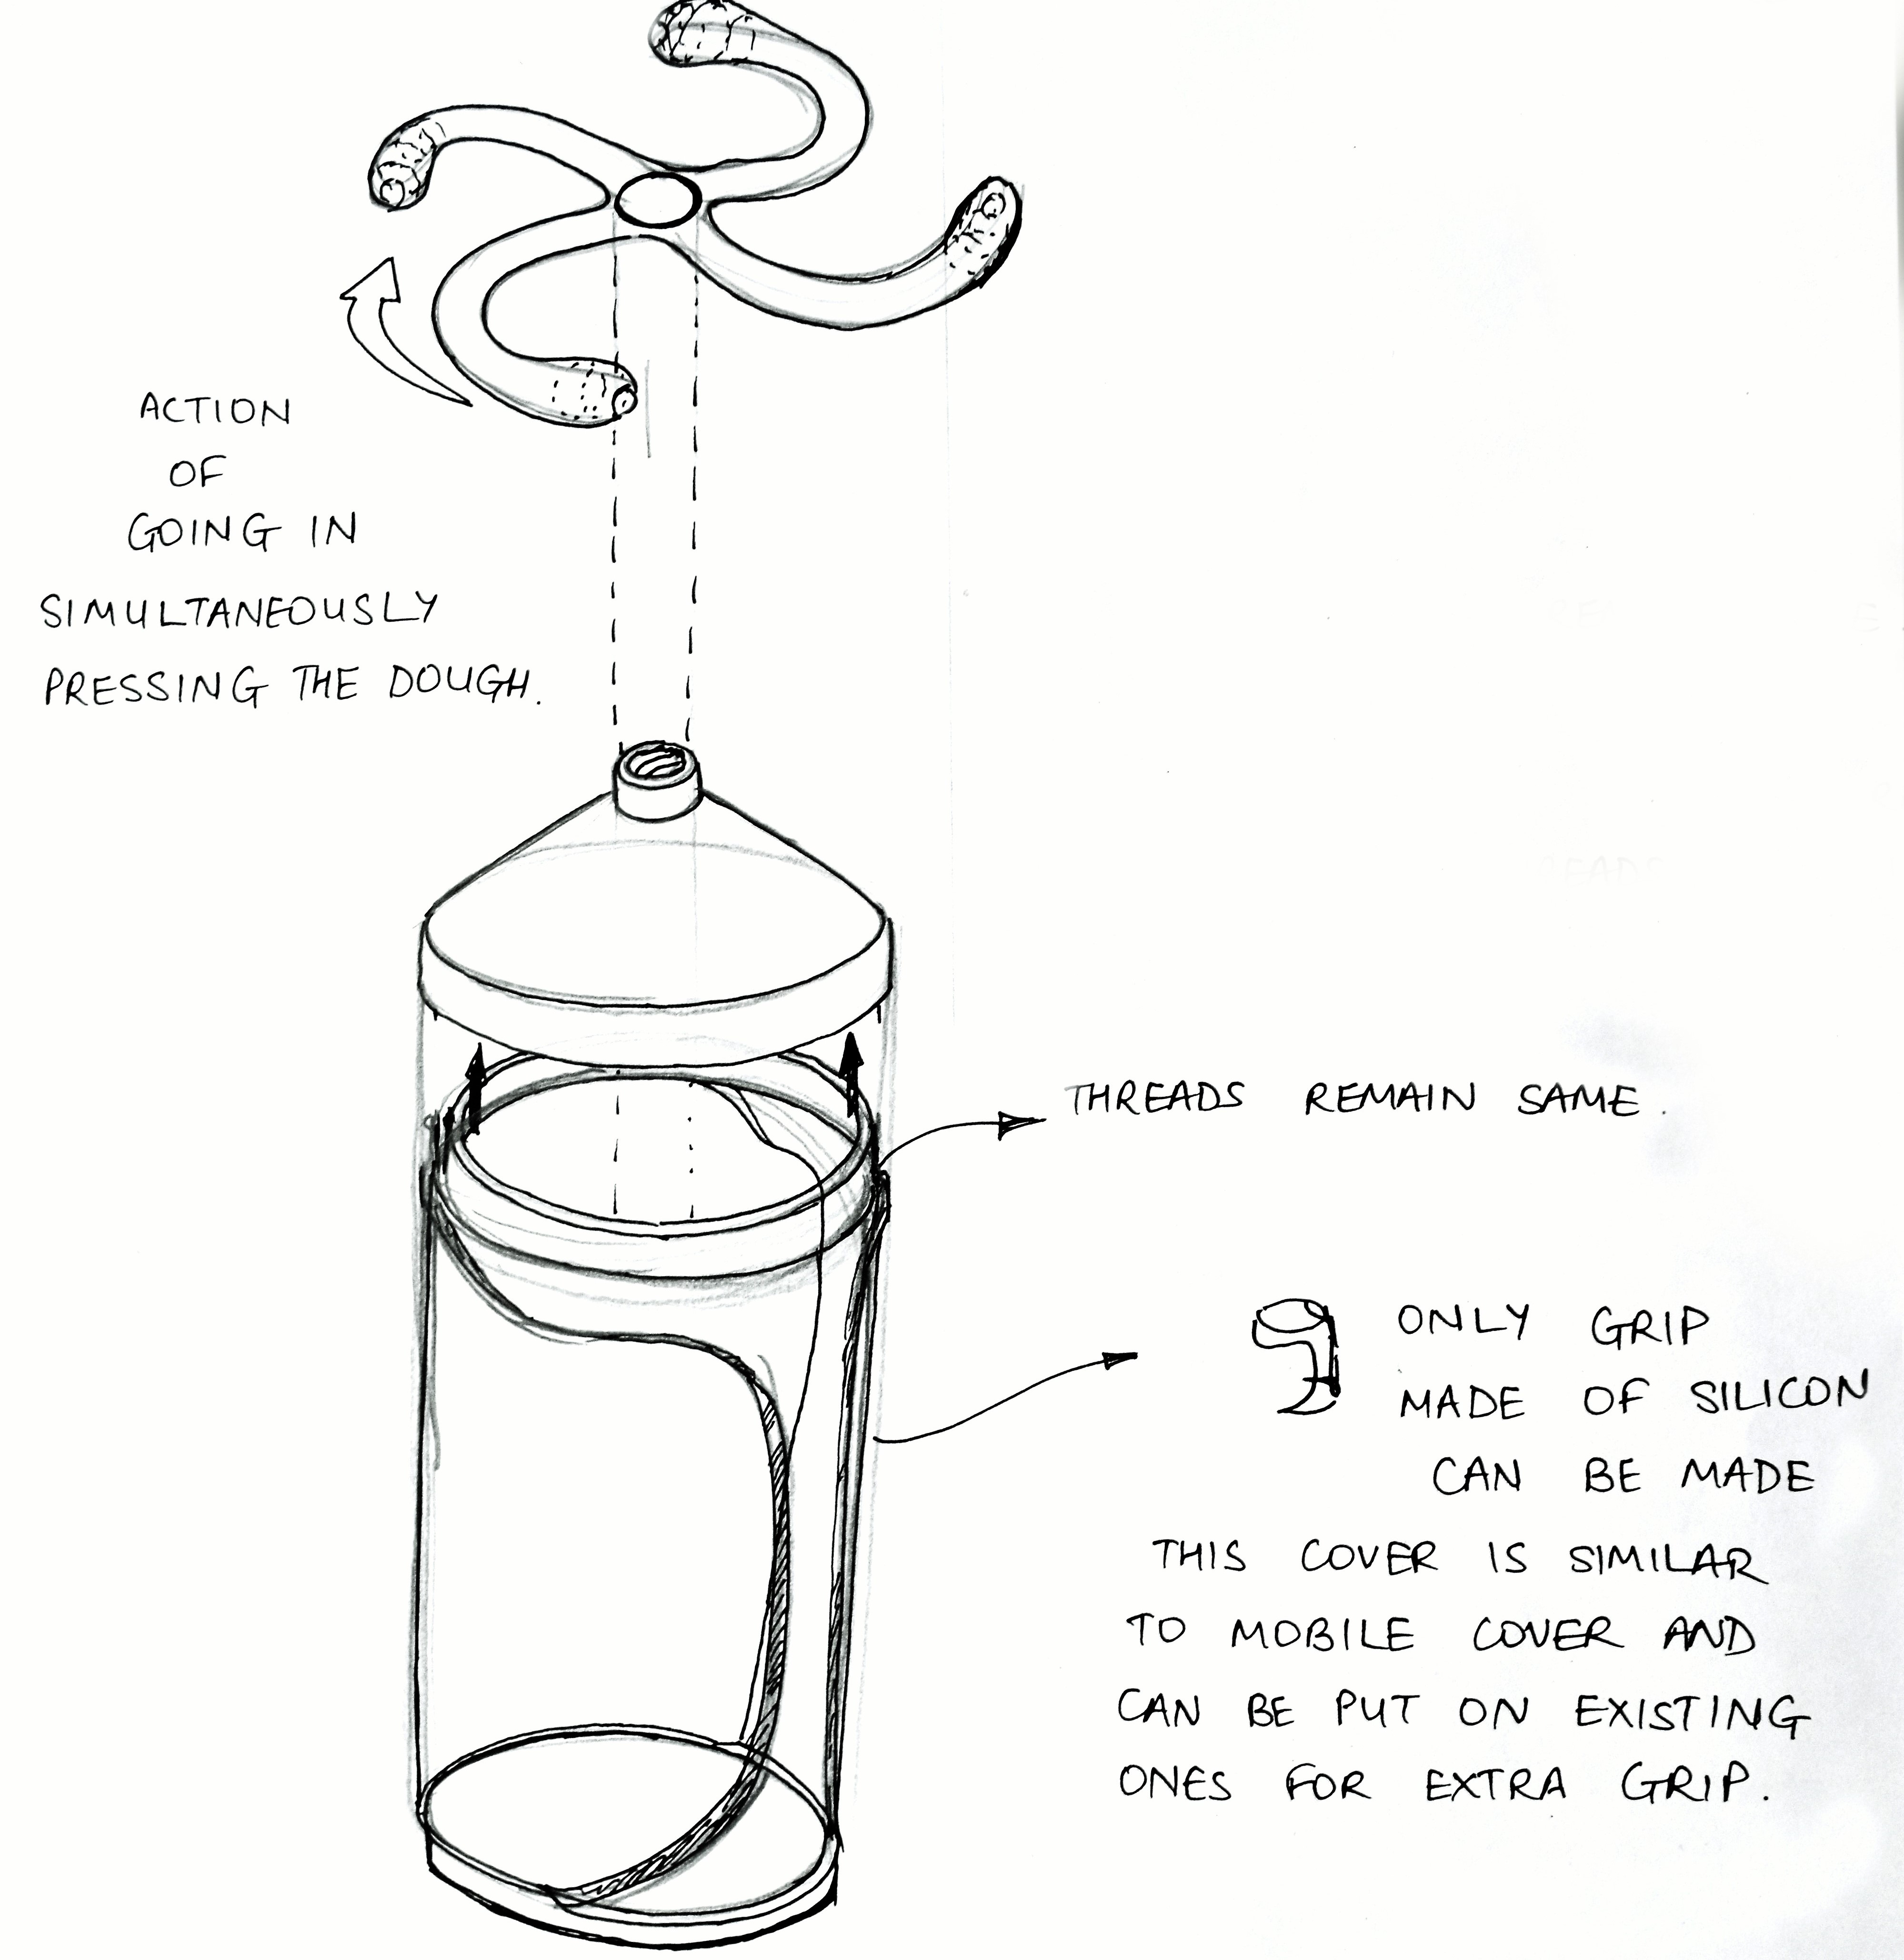 ACTION
OF
GOING IN
SIMULTANEOUSLY
PRESSING THE DOUGH.
THREADS REMAIN SAME.
ONLY GRIP
MADE OF SILICON
CAN BE MADE
THIS COVER IS SIMILAR
TO MOBILE COVER AND
CAN BE PUT ON EXISTING
ONES FOR EXTRA GRIP.